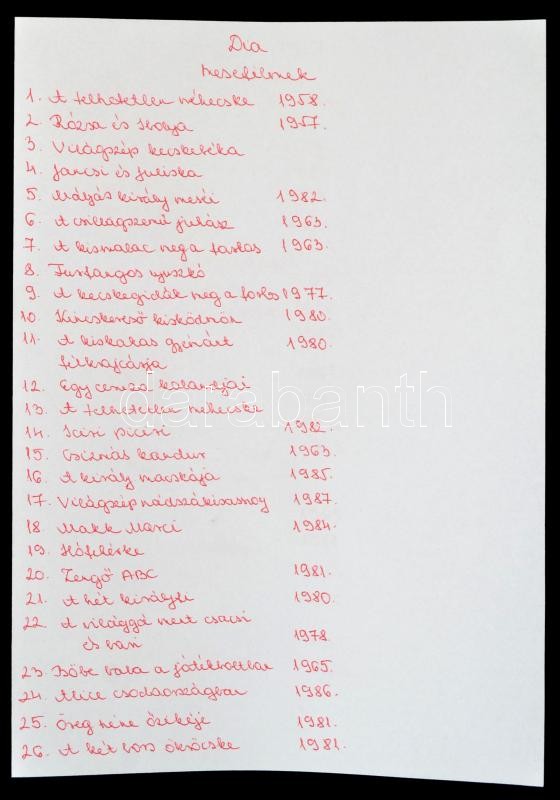 Dia
Mesefilmek
1. A telhetetlen méhecske 1958.
2. Rózsa és Ibolya 1957.
3. Világszép kecskebéka
4. Jancsi és Juliska
5. Mátyás király meséi 1982.
6. A csillagszemű juhász 1963.
7. A kismalac meg a farkas 1963.
8. Furfangos nyuszkó
9. A kecskegidák meg a farkas 1977.
10. Kincskereső kisködmön 1980.
11. A kiskakas gyémánt 1980.
félkrajcárja
12. Egy ceruza kalandjai
13. A telhetetlen méhecske
14. Iciri piciri 1982.
15. Csizmás kandur 1963.
16. A király macskája 1985.
17. Világszép nádszálkisasszony 1987.
18. Makk Marci 1984.
19. Hófehérke
20. Zengő ABC 1981.
21. A hét királyfi 1980.
22. A világgá ment csacsi
és bari 1978.
23. Böbe baba a játékboltban 1965.
24. Alice csodaországban 1986.
25. Öreg néne őzikéje 1981.
26. A két bors ökröcske 1981.
darabanth